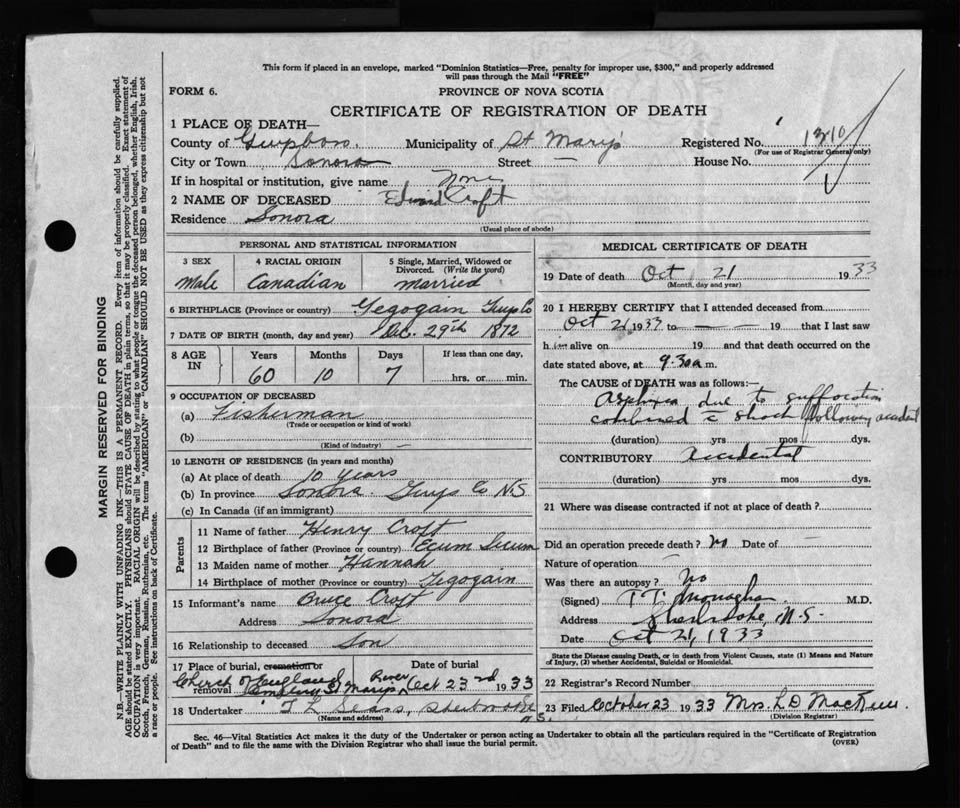 This form if placed in an envelope, marked "Dominion Statistics—Free, penalty for improper use, $300," and properly addressed
will pass through the Mail "FREE"
FORM 6.
PROVINCE OF NOVA SCOTIA
CERTIFICATE OF REGISTRATION OF DEATH
1 PLACE OF DEATH—
County of Guysboro Municipality of St Mary's Registered No. 1310
(For use of Registrar General only)
City or Town Sonora Street — House No.
If in hospital or institution, give name None
2 NAME OF DECEASED Edward Croft
Residence Sonora
(Usual place of abode)
PERSONAL AND STATISTICAL INFORMATION
3 SEX
Male
4 RACIAL ORIGIN
Canadian
5 Single, Married, Widowed or
Divorced. (Write the word)
married
6 BIRTHPLACE (Province or country) Gegogain Guys Co
7 DATE OF BIRTH (month, day and year) Dec. 29th 1872
8 AGE IN
Years Months Days If less than one day,
60 10 7 hrs. or min.
9 OCCUPATION OF DECEASED
(a) Fisherman
(Trade or occupation or kind of work)
(b)
(Kind of industry) —
10 LENGTH OF RESIDENCE (in years and months)
(a) At place of death 10 years
(b) In province Sonora. Guys Co N.S
(c) In Canada (if an immigrant)
Parents
11 Name of father Henry Croft
12 Birthplace of father (Province or country) Ecum Secum
13 Maiden name of mother Hannah
14 Birthplace of mother (Province or country) Gegogain
15 Informant's name Bruce Croft
Address Sonora
16 Relationship to deceased Son
17 Place of burial, cremation or removal Date of burial
Church of England St Marys River Oct 23rd 1933
18 Undertaker Sears, Sherbrooke N.S.
(Name and address)
MEDICAL CERTIFICATE OF DEATH
19 Date of death Oct 21 1933
(Month, day and year)
20 I HEREBY CERTIFY that I attended deceased from
Oct 21 1933 to — — 19 that I last saw
h alive on 19 and that death occurred on the
date stated above, at 9.30a m.
The CAUSE of DEATH was as follows:—
Asphyxia due to suffocation
combined c̄ shock following accident
(duration) yrs mos dys.
CONTRIBUTORY Accidental
(duration) yrs mos dys.
21 Where was disease contracted if not at place of death?
Did an operation precede death? no Date of —
Nature of operation —
Was there an autopsy? No
(Signed) Monaghan M.D.
Address Sherbrooke, N.S.
Date Oct 21, 1933
State the Disease causing Death, or in death from Violent Causes, state (1) Means and Nature
of Injury, (2) whether Accidental, Suicidal or Homicidal.
22 Registrar's Record Number
23 Filed October 23 1933 Mrs. L D
(Division Registrar)
Sec. 46—Vital Statistics Act makes it the duty of the Undertaker or person acting as Undertaker to obtain all the particulars required in the "Certificate of Registration
of Death" and to file the same with the Division Registrar who shall issue the burial permit. (OVER)
MARGIN RESERVED FOR BINDING
N.B.—WRITE PLAINLY WITH UNFADING INK—THIS IS A PERMANENT RECORD. Every item of information should be carefully supplied.
AGE should be stated EXACTLY. PHYSICIANS should STATE CAUSE OF DEATH in plain terms, so that it may be properly classified. Exact statement of
OCCUPATION is very important. RACIAL ORIGIN will be described by stating to what people or tongue the deceased person belonged, whether English, Irish,
Scotch, French, German, Russian, Ruthenian, etc. The terms "AMERICAN" or "CANADIAN" SHOULD NOT BE USED as they express citizenship but not
a race or people. See instructions on back of Certificate.